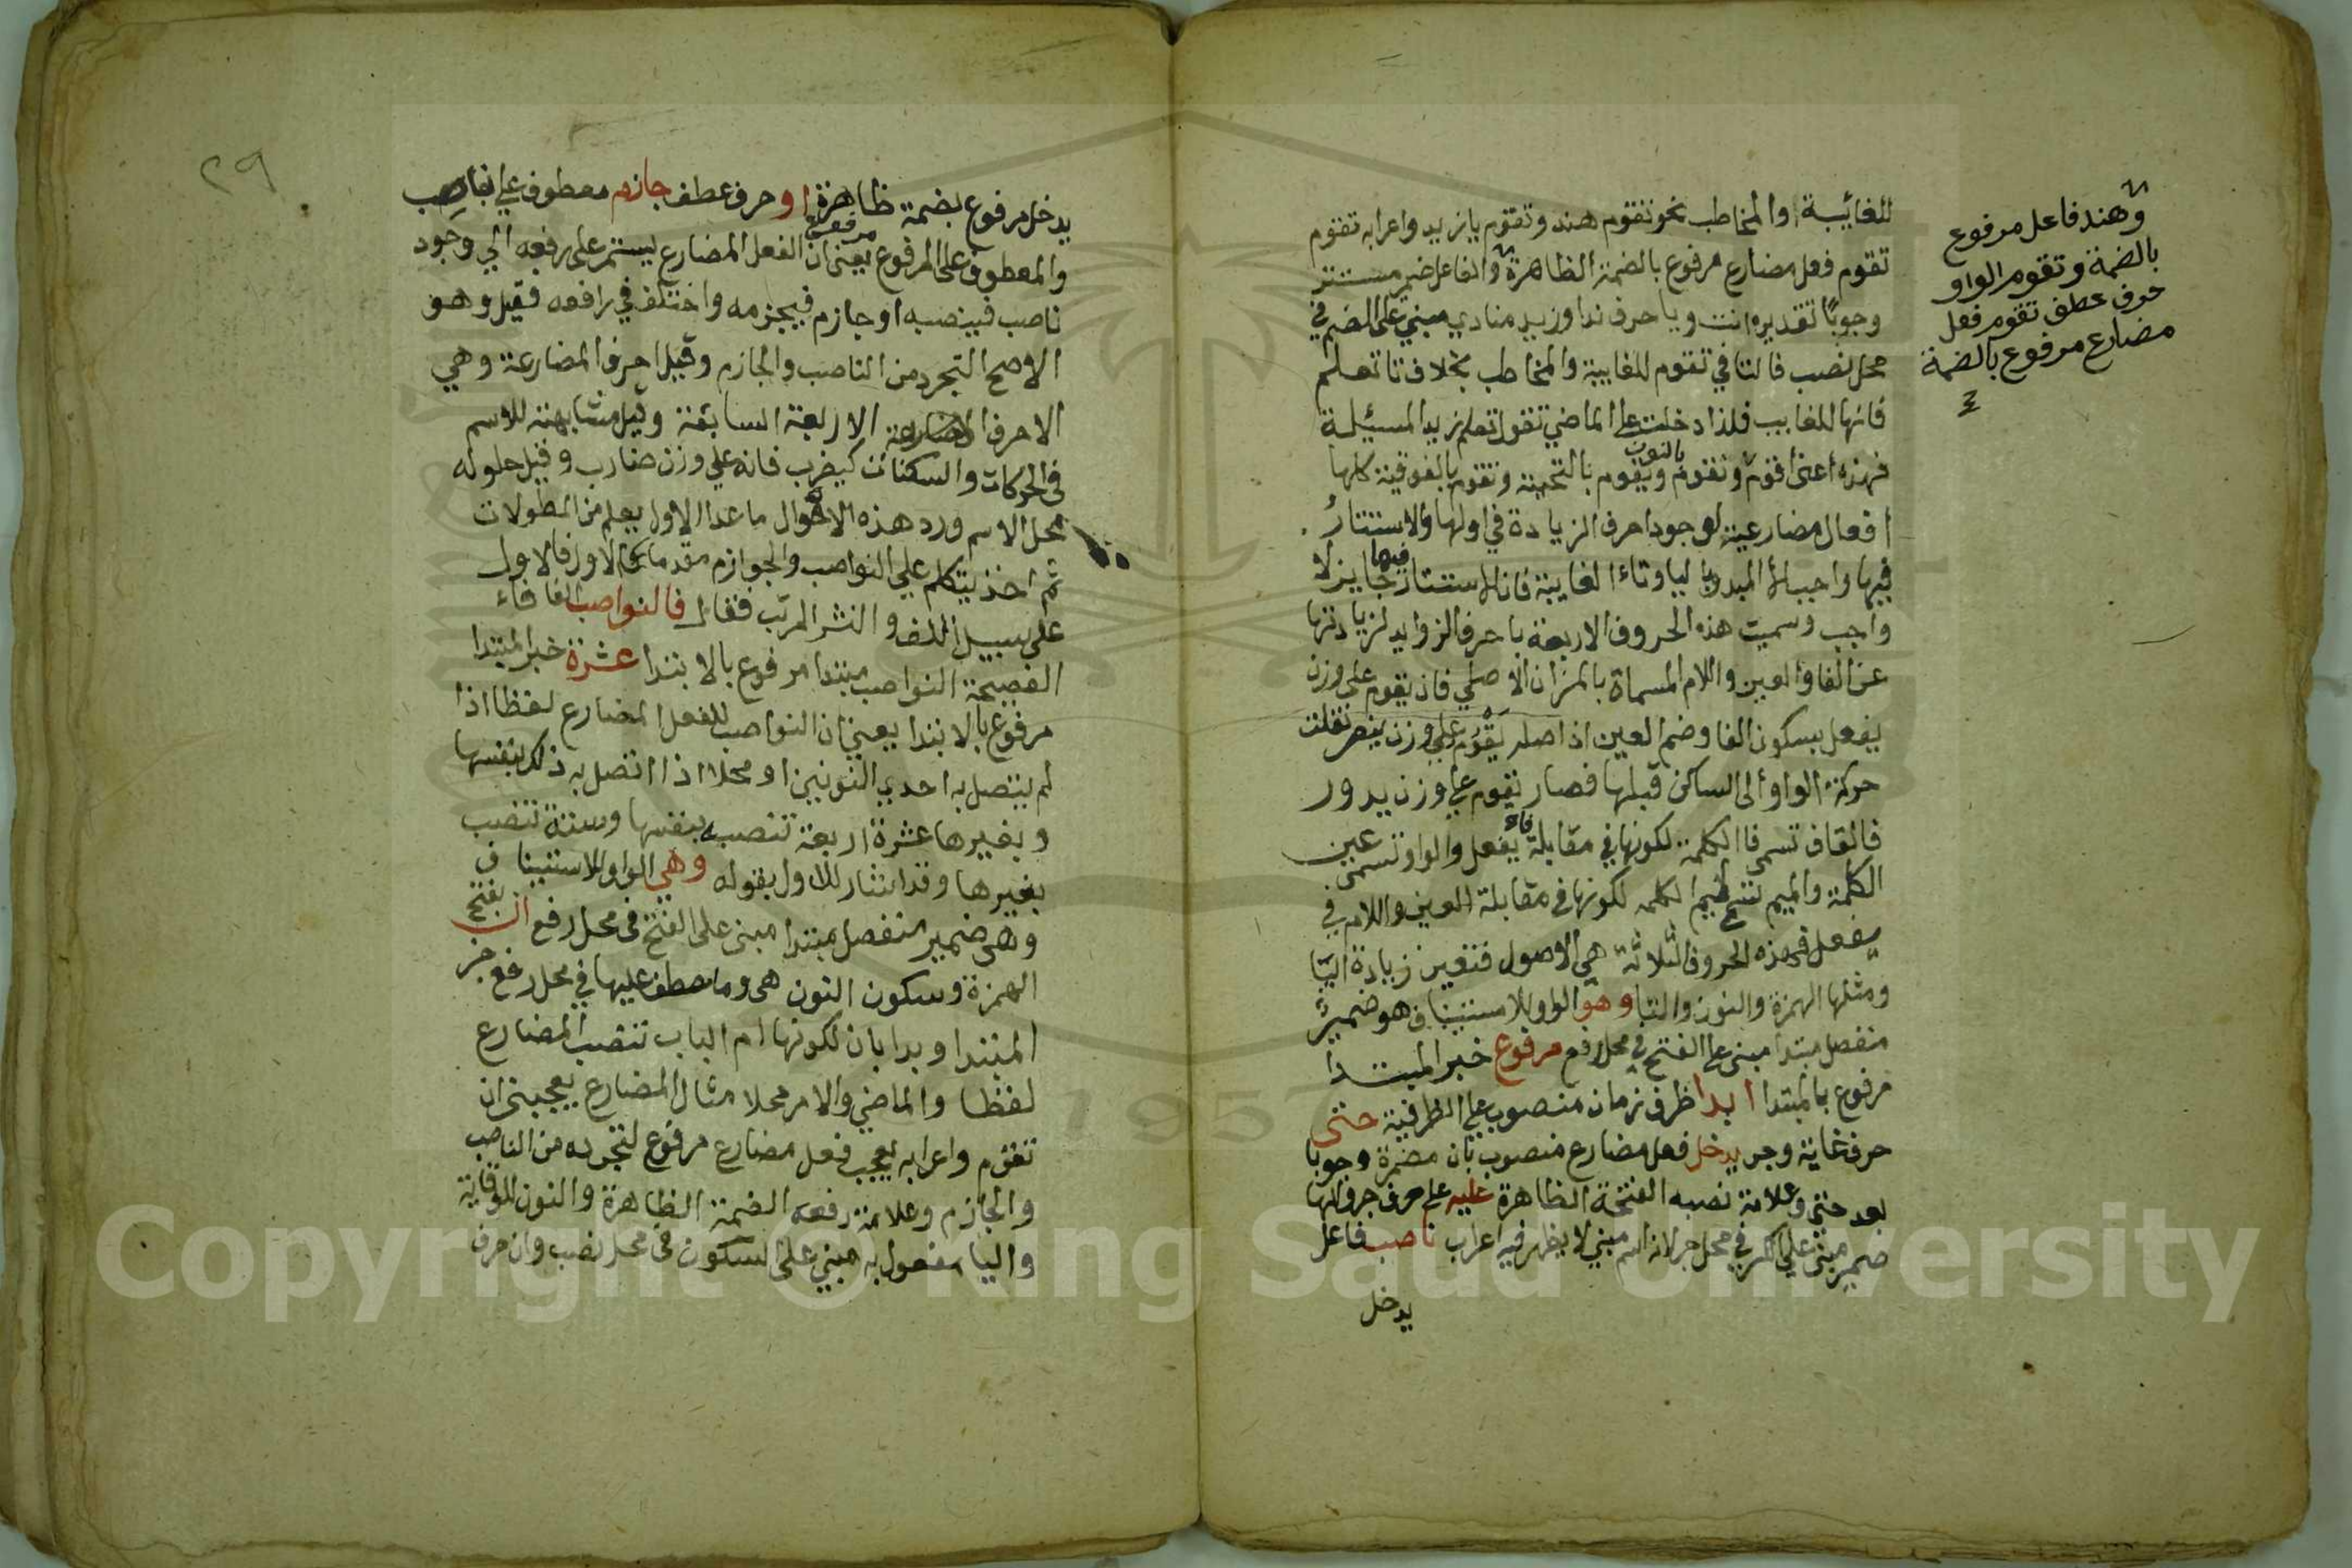 للغائيبة والمخاطب نحو تقوم هند وتقوم يا زيد واعرابه تقوم
تقوم فعل مضارع مرفوع بالضمة الظاهرة والفاعل ضمير مستتر
وجوبًا تقديره انت ويا حرف ندا وزيد منادي مبني على الضم في
محل نصب فالتا في تقوم للغايبة والمخاطب بخلاف تا تعلم
فانها للغايب فلذا دخلت على الماضي تقول تعلم زيد المسئيلة
فهذه اعني اقوم ونقوم بالنون ويقوم بالتحتية وتقوم بالفوقية كلها
افعال مضارعية لوجود احرف الزيادة في اولها والاستتار
فيها واجب الا المبدو باليا وتاء الغايبة فان الاستتار فيها جايز لا
واجب وسميت هذه الحروف الاربعة باحرف الزوايد لزيادتها
عن الفا والعين واللام المسماة بالمزان الاصلي فان يقوم على وزن
يفعل بسكون الفا وضم العين اذ اصله يقوم علي وزن ينصر نقلت
حركة الواو الى الساكن قبلها فصار يقوم علي وزن يدور
فالقاف تسمى فا الكلمة لكونها في مقابلة فاء يفعل والواو تسمى عين
الكلمة والميم لكونها في مقابلة العين واللام في
يفعل فهذه الحروف الثلاثة هي الاصول فتعين زيادة اليا
ومثلها الهمزة والنون والتا وهو الواو للاستيناف هو ضمير
منفصل مبتدا مبني على الفتح في محل رفع مرفوع خبر المبتدا
مرفوع بالمبتدا ابدا ظرف زمان منصوب على الظرفية حتى
حرف غاية وجر يدخل فعل مضارع منصوب بان مضمرة وجوبا
بعد حتى وعلامة نصبه الفتحة الظاهرة عليه على حرف جر والها
ضمير مبني على الكسر في محل جر لانه اسم مبني لا يظهر فيه اعراب ناصب فاعل
يدخل
وهند فاعل مرفوع
بالضمة وتقوم الواو
حرف عطف تقوم فعل
مضارع مرفوع بالضمة
٤
٢٩
يدخل مرفوع بضمة ظاهرة او حرف عطف جازم معطوف علي ناصب
والمعطوف على المرفوع مرفوع يعني ان الفعل المضارع يستمر على رفعه الي وجود
ناصب فينصبه او جازم فيجزمه واختلف في رافعه فقيل وهو
الاصح التجرد من الناصب والجازم وقيل احرف المضارعة وهي
الاحرف الاربعة السابقة وقيل مشابهته للاسم
في الحركات والسكنات كيضرب فانه علي وزن ضارب وقيل حلوله
محل الاسم ورد هذه الاقوال ما عدا الاول يعلم من المطولات
ثم اخذ يتكلم علي النواصب والجوازم مقدما الاول فالاول
على سبيل اللف والنشر المرتب فقال فالنواصب الفا فاء
الفصيحة النواصب مبتدا مرفوع بالابتدا عشرة خبر المبتدا
مرفوع بالابتدا يعني ان النواصب للفعل المضارع لفظا اذا
لم يتصل به احدي النونين او محلا اذا اتصل به ذلك بنفسها
وبغيرها عشرة اربعة تنصب بنفسها وستة تنصب
بغيرها وقد اشار للاول بقوله وهي الواو للاستيناف
وهي ضمير منفصل مبتدا مبنى على الفتح فى محل رفع ان بفتح
الهمزة وسكون النون هى وما عطف عليها في محل رفع خبر
المبتدا وبدا بان لكونها ام الباب تنصب المضارع
لفظا والماضي والامر محلا مثال المضارع يعجبنى ان
تقوم واعرابه يعجب فعل مضارع مرفوع لتجرده من الناصب
والجازم وعلامة رفعه الضمة الظاهرة والنون للوقاية
واليا مفعول به مبني على السكون في محل نصب وان حرف
Copyright © King Saud University
1957